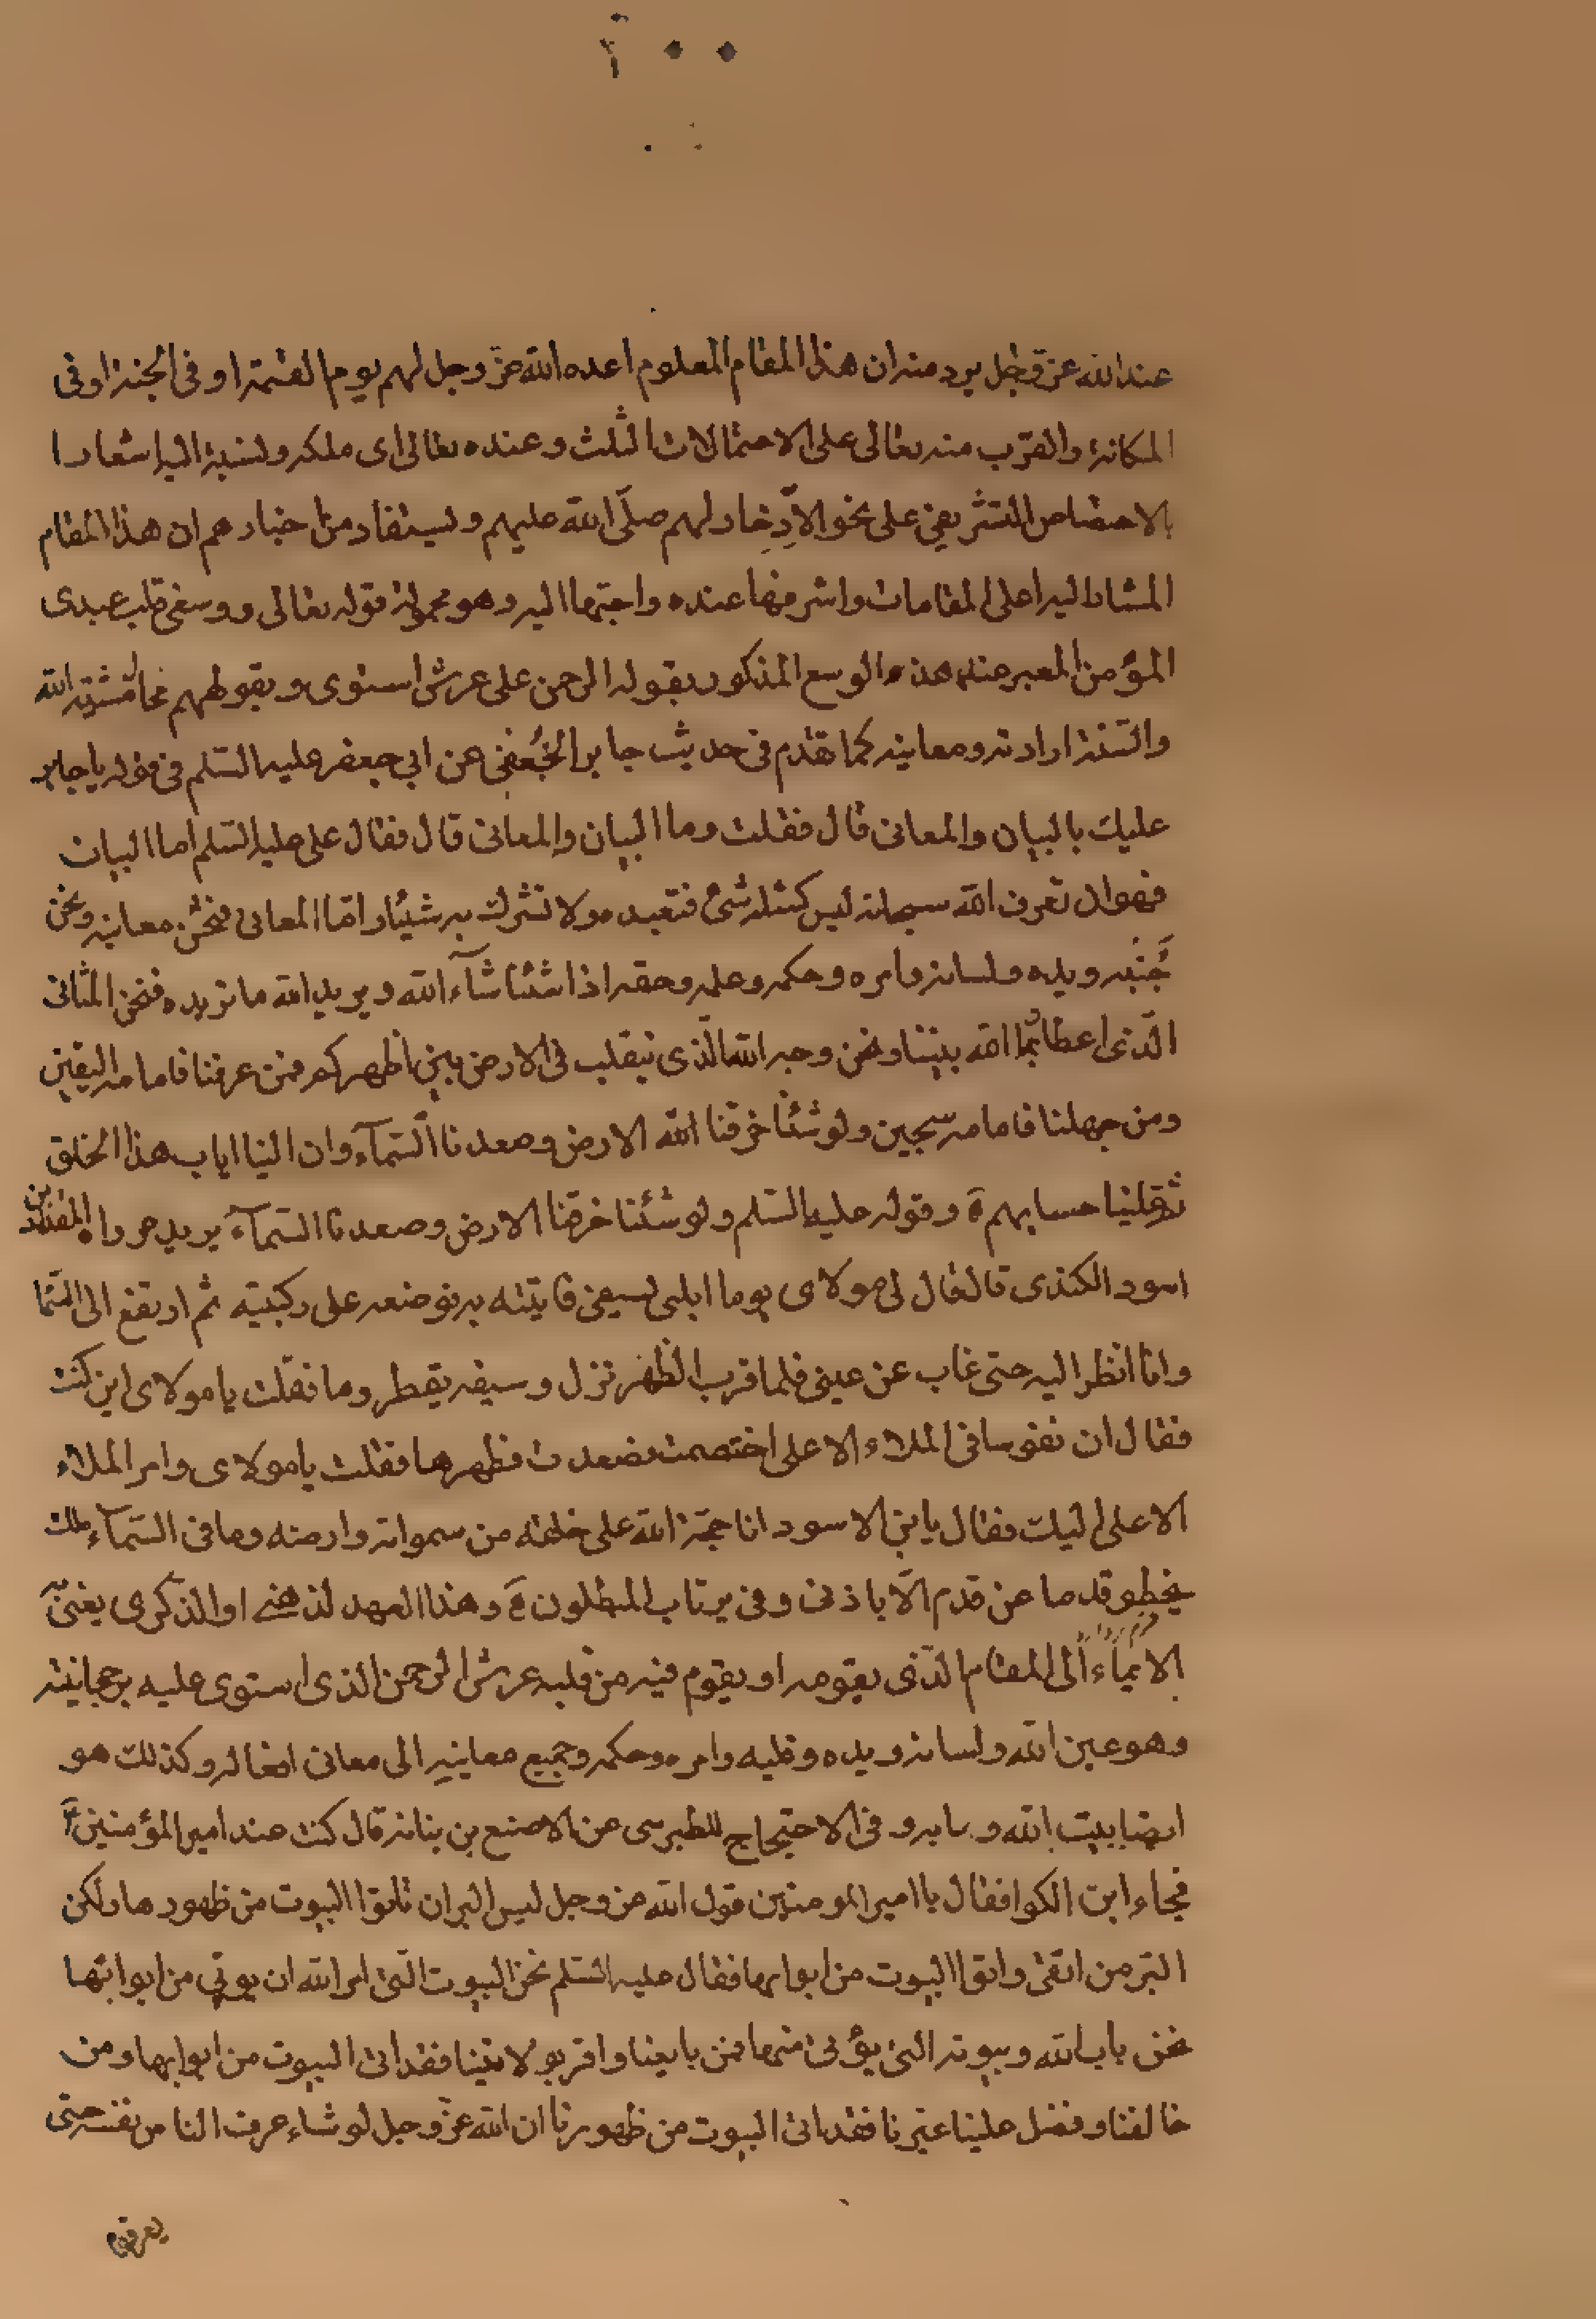 عند الله عز وجل يريد منه ان هذا المقام المعلوم اعده الله عز وجل لهم يوم القيمة او في الجنة او في
المكانة والقرب منه تعالى على الاحتمالات الثلث وعنده تعالى اى ملكه ونسبة اليه اشعارا
بالاختصاص التشريفي على نحو الادخار لهم صلى الله عليهم ويستفاد من اخبارهم ان هذا المقام
المشار اليه اعلى المقامات واشرفها عنده واحبها اليه وهو قوله تعالى ووسعني قلب عبدى
المؤمن المعبر عنه هذه الوسع المذكور بقوله الرحمن على عرش استوى وبقولهم نحن مشية الله
والسنة ارادته ومعانيه كما تقدم في حديث جابر الجعفي عن ابي جعفر عليه السلم في قوله يا جابر
عليك بالبيان والمعاني قال فقلت وما البيان والمعاني قال فقال على عليه السلم اما البيان
فهو ان تعرف الله سبحانه ليس كمثله شئ فتعبده ولا تشرك به شيئا واما المعاني فنحن معانيه ونحن
جنبه ويده ولسانه وامره وحكمه وعلمه وحقه اذا شئنا شآء الله ويريد الله ما نريده فنحن المثاني
الذى اعطانا الله نبينا ونحن وجه الله الذى يتقلب في الارض بين اظهركم فمن عرفنا فامامه اليقين
ومن جهلنا فامامه سجين ولو شئنا خرقنا الارض وصعدنا السمآء وان الينا اياب هذا الخلق
ثم علينا حسابهم ة وقوله عليه السلم ولو شئنا خرقنا الارض وصعدنا السمآء يريد ما رواه المقداد بن
اسود الكندى قال قال لى مولاى يوما ايتني بسيفي فاتيته به فوضعه على ركبتيه ثم ارتفع الى السما
وانا انظر اليه حتى غاب عن عيني فلما قرب الظهر نزل وسيفه يقطر دما فقلت يا مولاى اين كنت
فقال ان نفوسا في الملاء الاعلى اختصمت فصعدت فطهرها فقلت يا مولاى وامر الملاء
الاعلى اليك فقال يا بن الاسود انا حجة الله على خلقه من سمواته وارضه وما في السمآء ملك
يخطو قدما عن قدم الا باذني وفي يرتاب المبطلون ة وهذا العهد الذهني او الذكرى يعني
الايمآء الى المقام الذى يقومه او يقوم فيه من قلبه عرش الرحمن الذى استوى عليه برحمانيته
وهو عين الله ولسانه ويده وقلبه وامره وحكمه وجميع معانيه الى معاني افعاله وكذلك هو
ايضا بيت الله وبابه وفي الاحتجاج للطبرسى عن الاصبغ بن نباتة قال كنت عند امير المؤمنين
فجاء ابن الكوا فقال يا امير المومنين قول الله عز وجل ليس البر ان تاتوا البيوت من ظهورها ولكن
البر من اتقى واتوا البيوت من ابوابها فقال عليه السلم نحن البيوت التي امر الله ان يوتى من ابوابها
نحن باب الله وبيوته التي يؤتى منها فمن بايعنا واقر بولايتنا فقد اتى البيوت من ابوابها ومن
خالفنا وفضل علينا غيرنا فقد اتى البيوت من ظهورنا ان الله عز وجل لو شاء عرف الناس نفسه حتى
يعرفوه